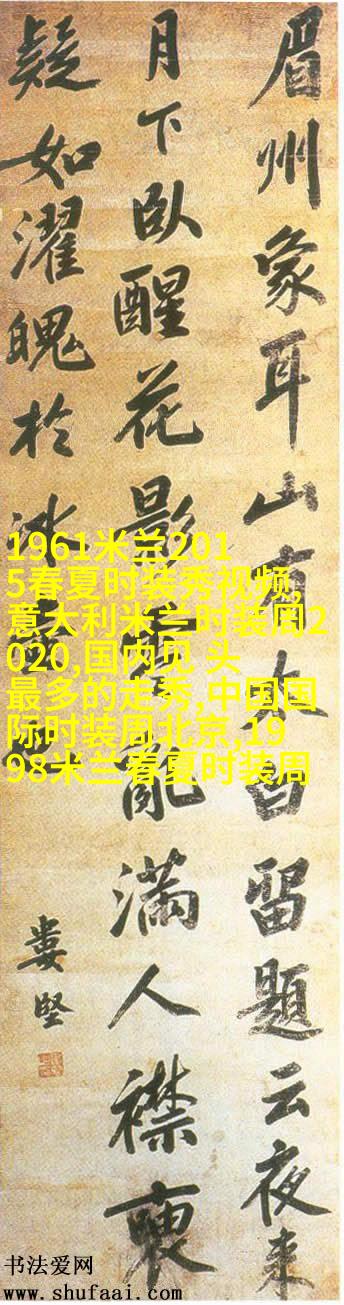 眉州象耳山有太白留題云夜来
月下臥醒花影亂滿人襟
疑如濯魄於冰
婁堅
1961米兰201
5春夏时装秀视频,
意大利米兰时装周2
020,国内见 头
最多的走秀,中国国
际时装周北京,19
98米兰春夏时装周
书法爱网
www.shufaai.com